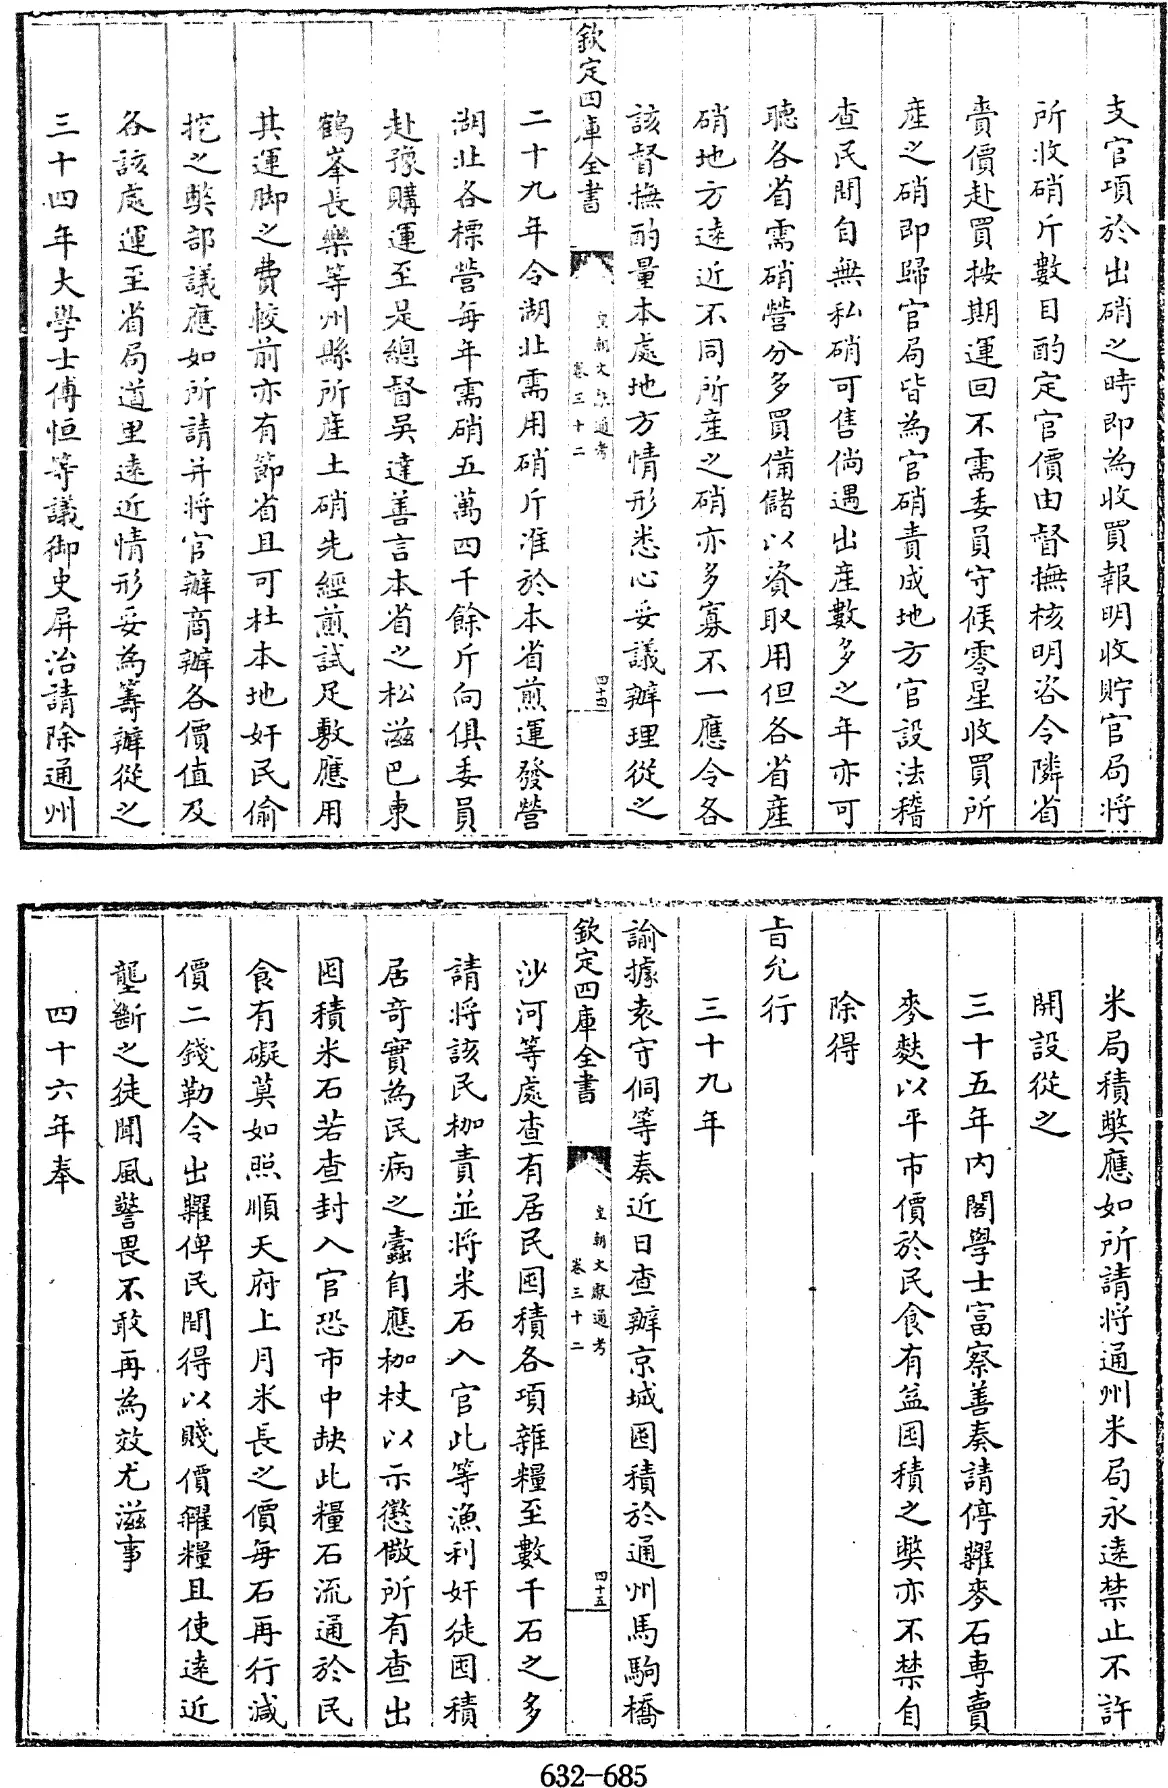 支官項於出硝之時即為收買報明收貯官局将
所收硝斤數目酌定官價由督撫核明咨令隣省
賫價赴買按期運回不需委員守候零星收買所
産之硝即歸官局皆為官硝責成地方官設法稽
查民間自無私硝可售倘遇出産數多之年亦可
聽各省需硝營分多買備儲以資取用但各省産
硝地方逺近不同所産之硝亦多寡不一應令各
該督撫酌量本處地方情形悉心妥議辦理從之
欽定四庫全書
皇朝文獻通考
卷三十二
四十四
二十九年令湖北需用硝斤准於本省煎運發營
湖北各標營每年需硝五萬四千餘斤向俱委員
赴豫購運至是總督吳達善言本省之松滋巴東
鶴峯長樂等州縣所産土硝先經煎試足敷應用
其運脚之費較前亦有節省且可杜本地奸民偷
挖之獘部議應如所請并将官辦商辦各價值及
各該處運至省局道里逺近情形妥為籌辦從之
三十四年大學士傅恒等議御史屏治請除通州
米局積獘應如所請将通州米局永逺禁止不許
開設從之
三十五年内閣學士富察善奏請停糶麥石專賣
麥麩以平市價於民食有益囤積之獘亦不禁自
除得
㫖允行
三十九年
諭據袁守侗等奏近日查辦京城囤積於通州馬駒橋
欽定四庫全書
皇朝文獻通考
卷三十二
四十五
沙河等處查有居民囤積各項雜糧至數千石之多
請将該民枷責並将米石入官此等漁利奸徒囤積
居奇實為民病之蠹自應枷杖以示懲儆所有查出
囤積米石若查封入官恐市中缺此糧石流通於民
食有礙莫如照順天府上月米長之價每石再行減
價二錢勒令出糶俾民間得以賤價糴糧且使逺近
壟斷之徒聞風警畏不敢再為效尤滋事
四十六年奉
632-685